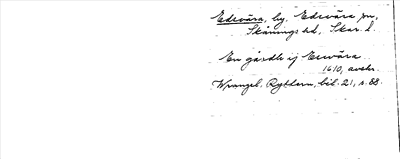 Edsvära, by. Edsvära sn,
Skånings hd, Skar. l.
En gårdh ij Eswära
1610, avskr.
Wrangel, Rytteru, bil. 21, s. 88.